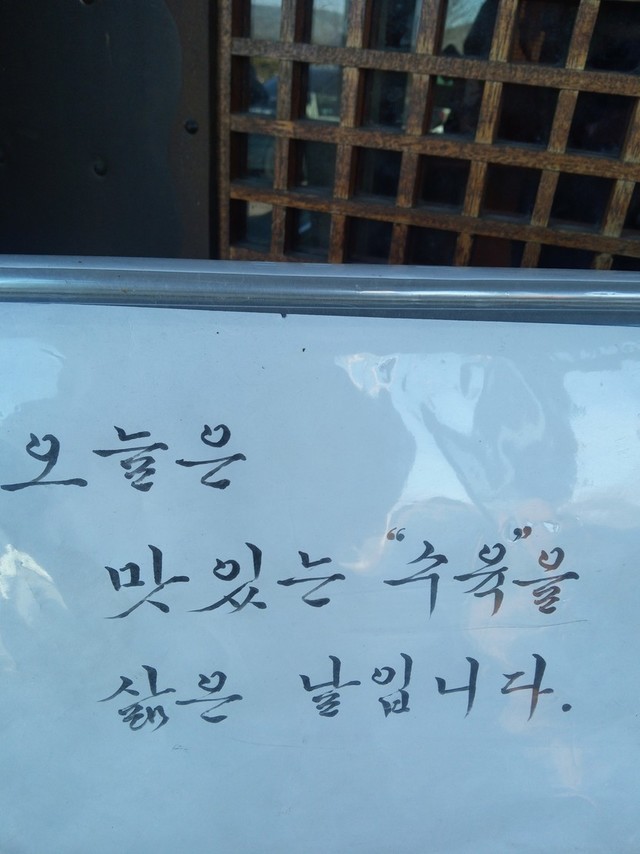 오늘은
맛있는 “수육”을
삶은 날입니다.